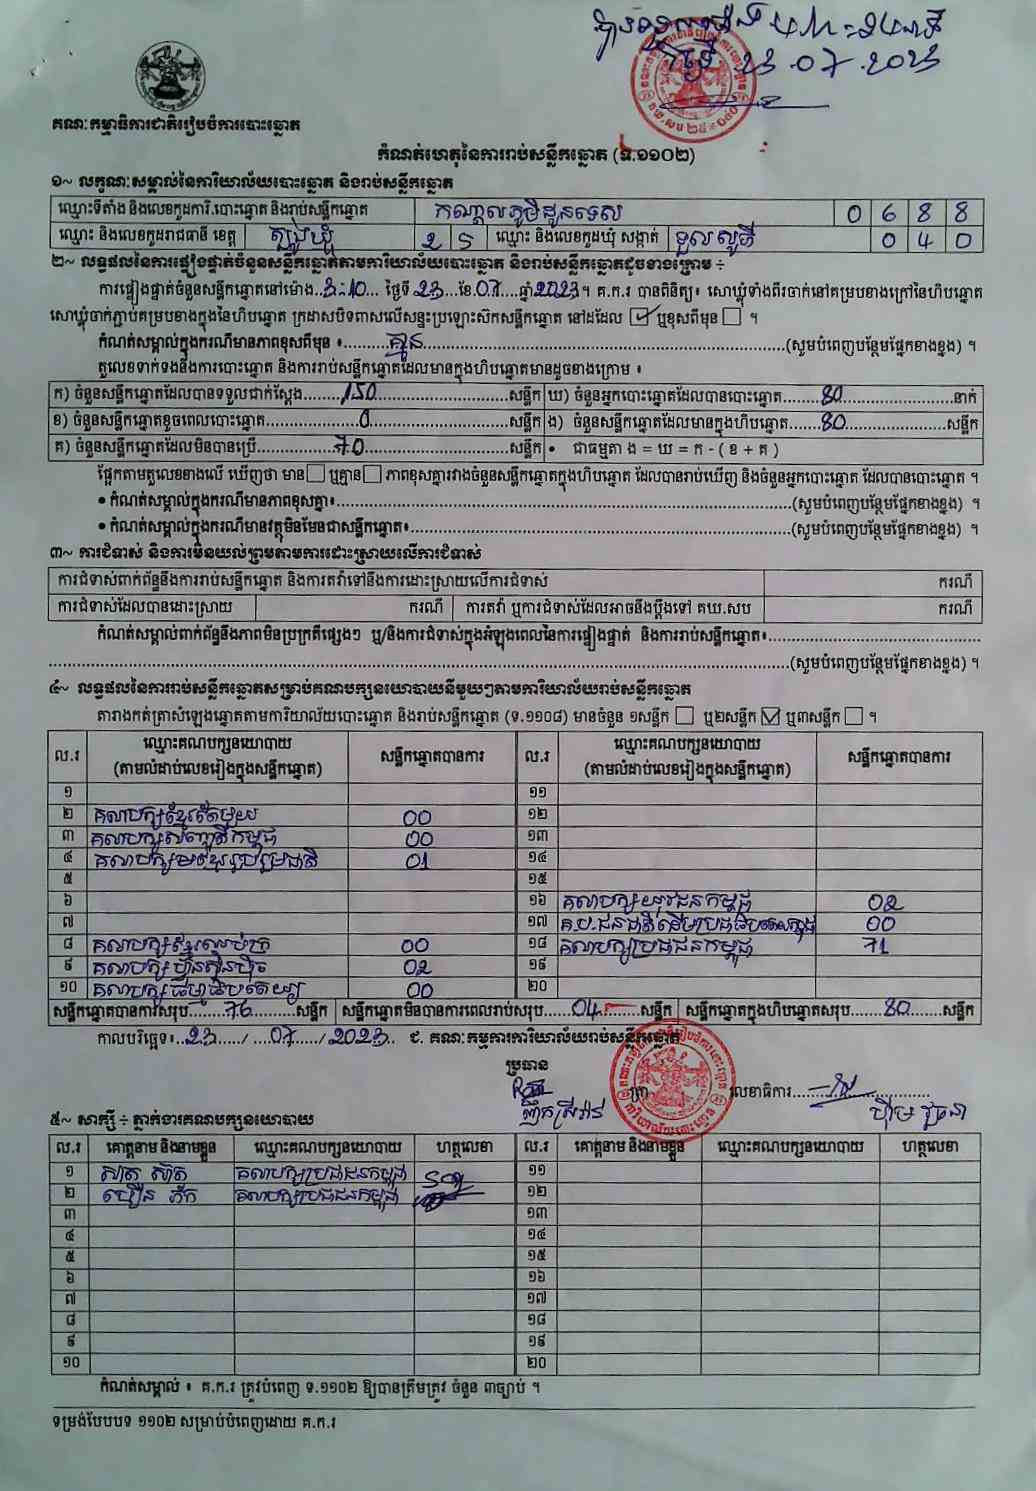 ថ្ងៃទី 23.07.2023
គណៈកម្មាធិការជាតិរៀបចំការបោះឆ្នោត
កំណត់ហេតុនៃការរាប់សន្លឹកឆ្នោត (ទ.១១០២)
១~ លក្ខណៈសម្គាល់នៃការិយាល័យបោះឆ្នោត និងរាប់សន្លឹកឆ្នោត
ឈ្មោះទីតាំង និងលេខកូដការិ.បោះឆ្នោត និងរាប់សន្លឹកឆ្នោត កណ្តាលភូមិដូនទេស 0 6 8 8
ឈ្មោះ និងលេខកូដរាជធានី ខេត្ត ត្បូងឃ្មុំ 2 5 ឈ្មោះ និងលេខកូដឃុំ សង្កាត់ ទួលសូភី 0 4 0
២~ លទ្ធផលនៃការផ្ទៀងផ្ទាត់ចំនួនសន្លឹកឆ្នោតតាមការិយាល័យបោះឆ្នោត និងរាប់សន្លឹកឆ្នោតដូចខាងក្រោម ÷
ការផ្ទៀងផ្ទាត់ចំនួនសន្លឹកឆ្នោតនៅម៉ោង..3:10... ថ្ងៃទី 23...ខែ.07....ឆ្នាំ2023។ គ.ក.រ បានពិនិត្យ៖ សោឃ្លុំទាំងពីរចាក់នៅគម្របខាងក្រៅនៃហិបឆ្នោត
សោឃ្លុំចាក់ភ្ជាប់គម្របខាងក្នុងនៃហិបឆ្នោត ក្រដាសបិទពាសលើសន្ទះប្រឡោះស៊កសន្លឹកឆ្នោត នៅដដែល ☑ ឬខុសពីមុន ☐ ។
កំណត់សម្គាល់ក្នុងករណីមានភាពខុសពីមុន ៖........គ្មាន........(សូមបំពេញបន្ថែមផ្នែកខាងខ្នង) ។
តួលេខទាក់ទងនឹងការបោះឆ្នោត និងការរាប់សន្លឹកឆ្នោតដែលមានក្នុងហិបឆ្នោតមានដូចខាងក្រោម ៖
ក) ចំនួនសន្លឹកឆ្នោតដែលបានទទួលជាក់ស្តែង........150........សន្លឹក ឃ) ចំនួនអ្នកបោះឆ្នោតដែលបានបោះឆ្នោត........80........នាក់
ខ) ចំនួនសន្លឹកឆ្នោតខូចពេលបោះឆ្នោត........0........សន្លឹក ង) ចំនួនសន្លឹកឆ្នោតដែលមានក្នុងហិបឆ្នោត........80........សន្លឹក
គ) ចំនួនសន្លឹកឆ្នោតដែលមិនបានប្រើ........70........សន្លឹក • ជាធម្មតា ង = ឃ = ក - ( ខ + គ )
ផ្អែកតាមតួលេខខាងលើ ឃើញថា មាន ☐ ឬគ្មាន ☐ ភាពខុសគ្នារវាងចំនួនសន្លឹកឆ្នោតក្នុងហិបឆ្នោត ដែលបានរាប់ឃើញ និងចំនួនអ្នកបោះឆ្នោត ដែលបានបោះឆ្នោត ។
• កំណត់សម្គាល់ក្នុងករណីមានភាពខុសគ្នា៖........(សូមបំពេញបន្ថែមផ្នែកខាងខ្នង) ។
• កំណត់សម្គាល់ក្នុងករណីមានវត្ថុមិនមែនជាសន្លឹកឆ្នោត៖........(សូមបំពេញបន្ថែមផ្នែកខាងខ្នង) ។
៣~ ការជំទាស់ និងការមិនយល់ព្រមតាមការដោះស្រាយលើការជំទាស់
ការជំទាស់ពាក់ព័ន្ធនឹងការរាប់សន្លឹកឆ្នោត និងការតវ៉ាទៅនឹងការដោះស្រាយលើការជំទាស់ ករណី
ការជំទាស់ដែលបានដោះស្រាយ ករណី ការតវ៉ា ឬការជំទាស់ដែលអាចនឹងប្តឹងទៅ គឃ.សប ករណី
កំណត់សម្គាល់ពាក់ព័ន្ធនឹងភាពមិនប្រក្រតីផ្សេងៗ ឬ/និងការជំទាស់ក្នុងអំឡុងពេលនៃការផ្ទៀងផ្ទាត់ និងការរាប់សន្លឹកឆ្នោត៖........
........(សូមបំពេញបន្ថែមផ្នែកខាងខ្នង) ។
៤~ លទ្ធផលនៃការរាប់សន្លឹកឆ្នោតសម្រាប់គណបក្សនយោបាយនីមួយៗតាមការិយាល័យរាប់សន្លឹកឆ្នោត
តារាងកត់ត្រាសំឡេងឆ្នោតតាមការិយាល័យបោះឆ្នោត និងរាប់សន្លឹកឆ្នោត (ទ.១១០៨) មានចំនួន ១សន្លឹក ☐ ឬ២សន្លឹក ☑ ឬ៣សន្លឹក ☐ ។
ល.រ ឈ្មោះគណបក្សនយោបាយ (តាមលំដាប់លេខរៀងក្នុងសន្លឹកឆ្នោត) សន្លឹកឆ្នោតបានការ ល.រ ឈ្មោះគណបក្សនយោបាយ (តាមលំដាប់លេខរៀងក្នុងសន្លឹកឆ្នោត) សន្លឹកឆ្នោតបានការ
១ ១១
២ គណបក្សខ្មែរតែមួយ 00 ១២
៣ គណបក្សសញ្ជាតិកម្ពុជា 00 ១៣
៤ គណបក្សខ្មែររួបរួមជាតិ 01 ១៤
៥ ១៥
៦ ១៦ គណបក្សយុវជនកម្ពុជា 02
៧ ១៧ គ.ប.ជនជាតិដើមប្រជាធិបតេយ្យកម្ពុជា 00
៨ គណបក្សខ្មែរឈប់ក្រ 00 ១៨ គណបក្សប្រជាជនកម្ពុជា 71
៩ គណបក្សហ៊្វុនស៊ិនប៉ិច 02 ១៩
១០ គណបក្សធម្មាធិបតេយ្យ 00 ២០
សន្លឹកឆ្នោតបានការសរុប........76........សន្លឹក សន្លឹកឆ្នោតមិនបានការពេលរាប់សរុប.....04.....សន្លឹក សន្លឹកឆ្នោតក្នុងហិបឆ្នោតសរុប.......80.......សន្លឹក
កាលបរិច្ឆេទ៖..23...../....07...../2023.. ជ. គណៈកម្មការការិយាល័យរាប់សន្លឹកឆ្នោត
ប្រធាន
ត្រា លេខាធិការ........
៥~ សាក្សី ÷ ភ្នាក់ងារគណបក្សនយោបាយ
ល.រ គោត្តនាម និងនាមខ្លួន ឈ្មោះគណបក្សនយោបាយ ហត្ថលេខា ល.រ គោត្តនាម និងនាមខ្លួន ឈ្មោះគណបក្សនយោបាយ ហត្ថលេខា
១ គណបក្សប្រជាជនកម្ពុជា ១១
២ គណបក្សប្រជាជនកម្ពុជា ១២
៣ ១៣
៤ ១៤
៥ ១៥
៦ ១៦
៧ ១៧
៨ ១៨
៩ ១៩
១០ ២០
កំណត់សម្គាល់ ៖ គ.ក.រ ត្រូវបំពេញ ទ.១១០២ ឱ្យបានត្រឹមត្រូវ ចំនួន ៣ច្បាប់ ។
ទម្រង់បែបបទ ១១០២ សម្រាប់បំពេញដោយ គ.ក.រ